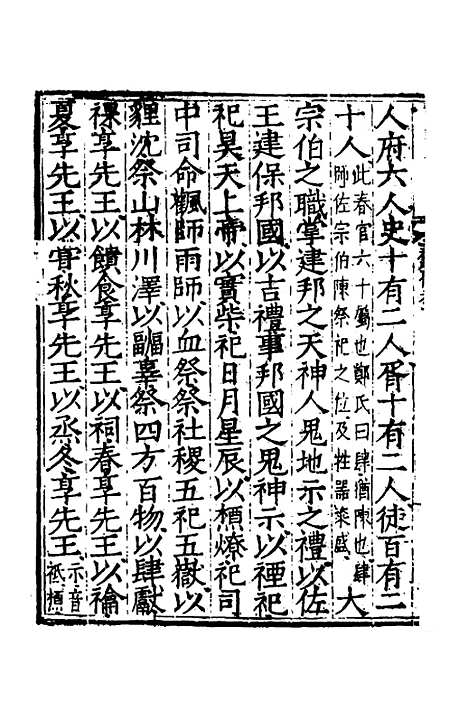 人府六人史十有二人胥十有二人徒百有二
十人此春官六十屬也鄭氏曰肆猶陳也肆師佐宗伯陳祭祀之位及牲器粢盛大
宗伯之職掌建邦之天神人鬼地示之禮以佐
王建保邦國以吉禮事邦國之鬼神示以禋祀
祀昊天上帝以實柴祀日月星辰以槱燎祀司
中司命飌師雨師以血祭祭社稷五祀五嶽以
貍沈祭山林川澤以疈辜祭四方百物以肆獻
祼享先王以饋食享先王以祠春享先王以禴
夏享先王以甞秋享先王以烝冬享先王示音祇槱